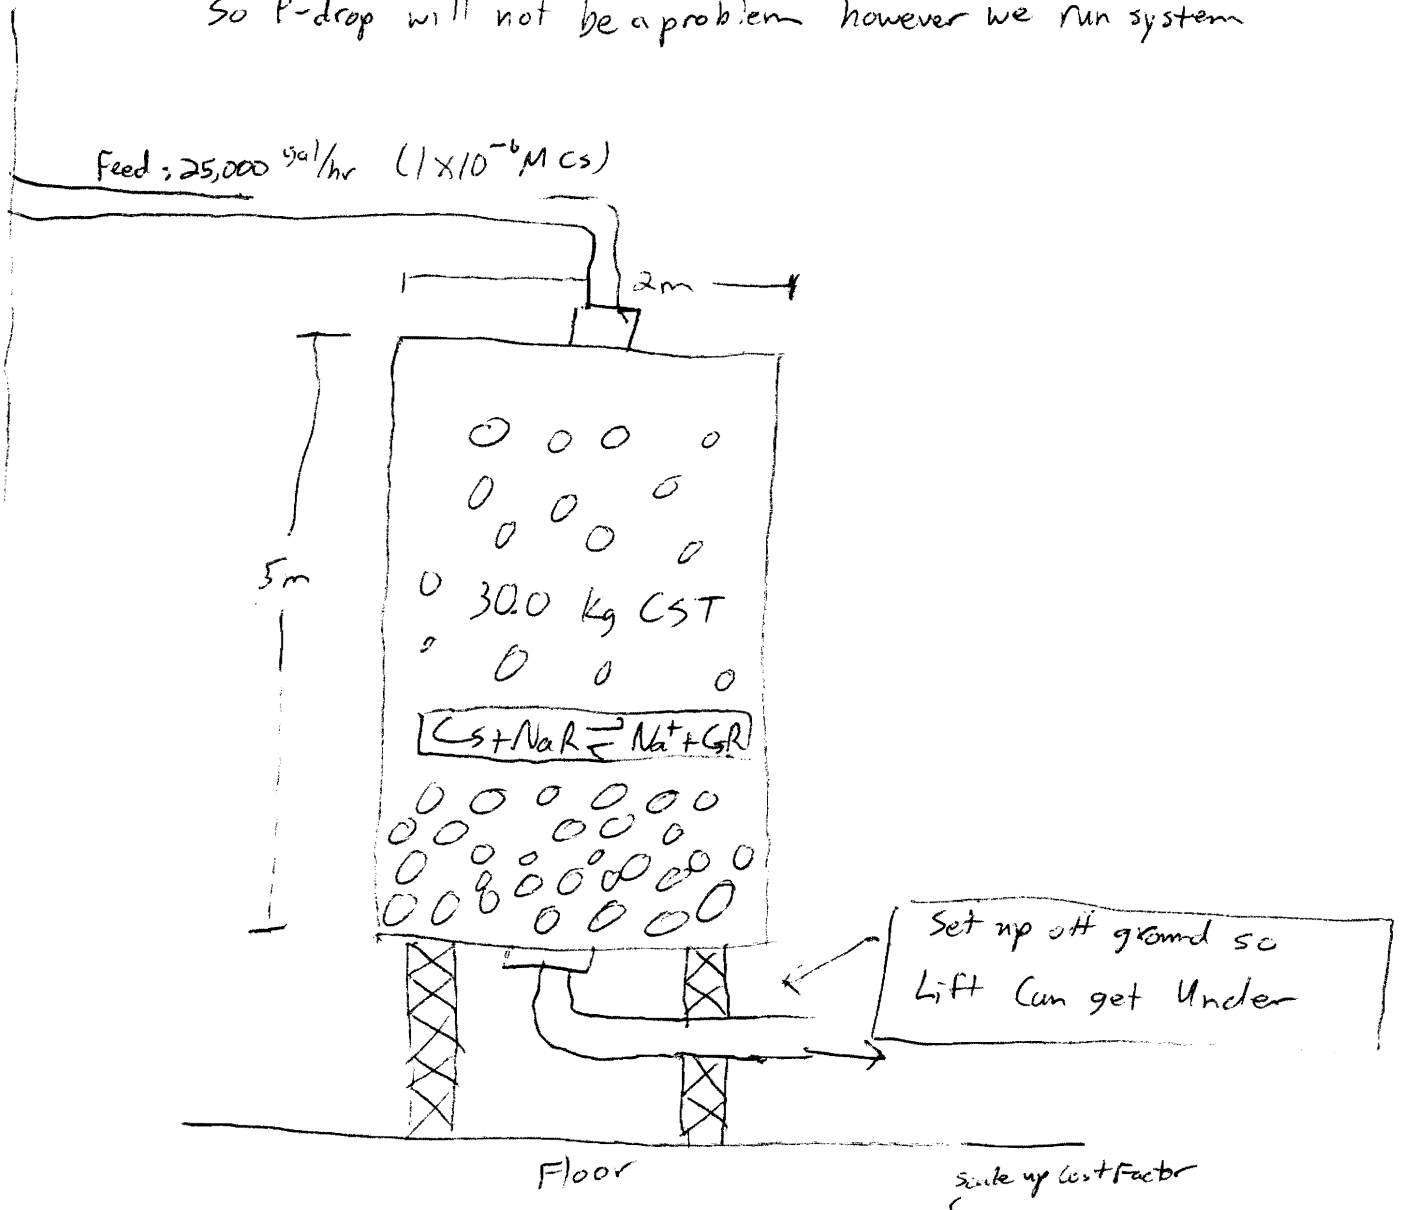 So P-drop will not be a problem however we run system
Feed: 25,000 gal/hr (1x10⁻⁶ M Cs)
2m
5m
30.0 kg CST
Cs+NaR ⇌ Na⁺+CsR
Set up off ground so
Lift Can get Under
Floor
Scale up Cost Factor